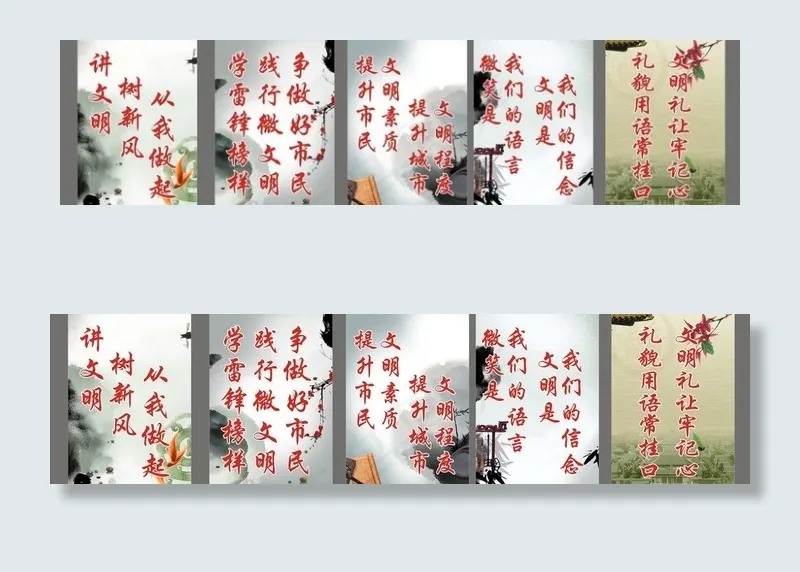 讲文明
树新风
从我做起
学雷锋榜样
践行微文明
争做好市民
提升市民
文明素质
提升城市
文明程度
微笑是
我们的语言
文明是
我们的信念
礼貌用语常挂口
文明礼让牢记心
讲文明
树新风
从我做起
学雷锋榜样
践行微文明
争做好市民
提升市民
文明素质
提升城市
文明程度
微笑是
我们的语言
文明是
我们的信念
礼貌用语常挂口
文明礼让牢记心